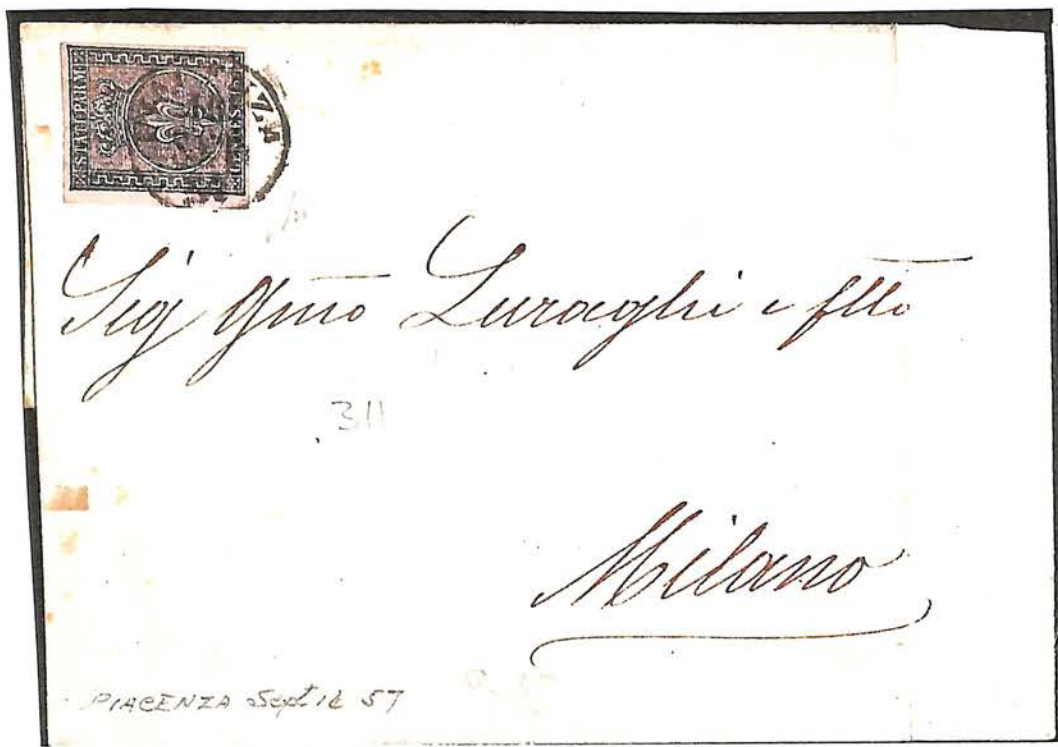 STATI PARM.
Sig Gmo Luraghi e flló
311
Milano
PIACENZA Sept 57